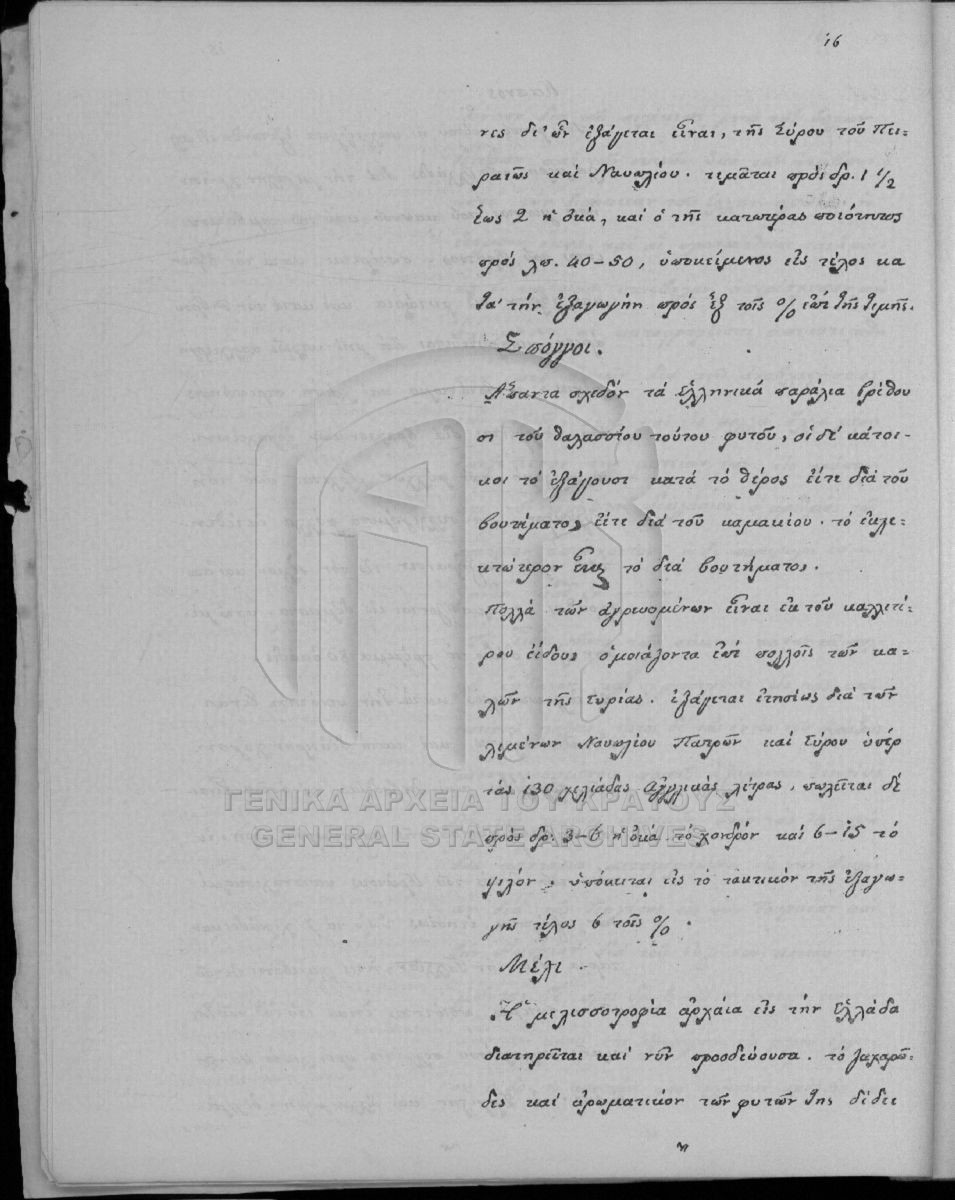 16
νες δι' ὧν ἐξάγεται εἶναι, τῆς Σύρου τοῦ Πει-
ραιῶς καί Ναυπλίου. τιμᾶται πρός δρ. 1 1/2
ἕως 2 ἡ ὀκά, καί ὁ τῆς κατωτέρας ποιότητος
πρός λπ. 40-50, ὑποκείμενος εἰς τέλος κα
τά τήν ἐξαγωγήν πρός ἕξ τοῖς % ἐπί τῆς τιμῆς.
Σπόγγοι.
Ἅπαντα σχεδόν τά Ἑλληνικά παράλια βρίθου
σι τοῦ θαλασσίου τούτου φυτοῦ, οἱ δέ κάτοι-
κοι τό ἐξάγουσι κατά τό θέρος εἴτε διά τοῦ
βουτήματος εἴτε διά τοῦ καμακίου. τό ἐκλε-
κτώτερον εἶναι τό διά βουτήματος.
Πολλά τῶν ἀγρευομένων εἶναι ἐκ τοῦ καλλιτέ-
ρου εἴδους ὁμοιάζοντα ἐπί πολλοῖς τῶν κα-
λῶν τῆς Συρίας. ἐξάγεται ἐτησίως διά τῶν
λιμένων Ναυπλίου Πατρῶν καί Σύρου ὑπέρ
τάς 130 χιλιάδας Ἀγγλικάς λίτρας, πωλεῖται δέ
πρός δρ. 3-6 ἡ ὀκά τό χονδρόν καί 6-15 τό
ψιλόν, ὑπόκειται εἰς τό τακτικόν τῆς ἐξαγω-
γῆς τέλος 6 τοῖς %.
Μέλι
Ἡ μελισσοτροφία ἀρχαία εἰς τήν Ἑλλάδα
διατηρεῖται καί νῦν προοδεύουσα. τό ζαχαρῶ-
δες καί ἀρωματικόν τῶν φυτῶν της δίδει
ΓΕΝΙΚΑ ΑΡΧΕΙΑ ΤΟΥ ΚΡΑΤΟΥΣ
GENERAL STATE ARCHIVES